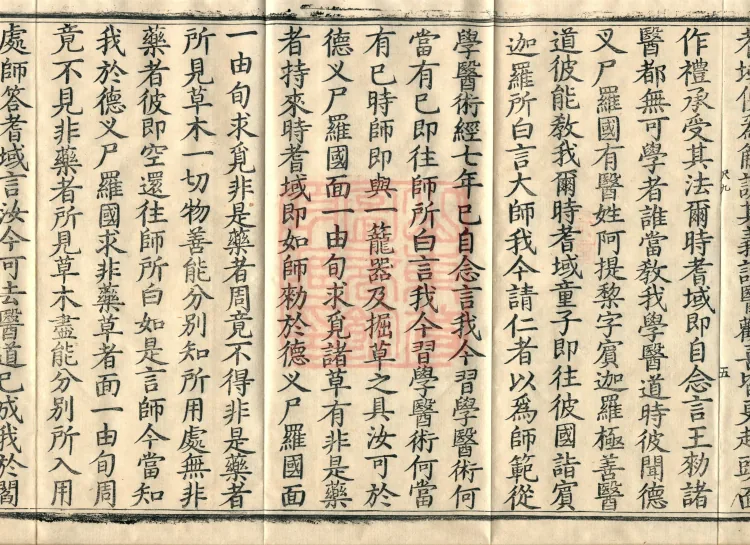 作禮承受其法爾時耆域即自念言王勑諸
醫都無可學者誰當教我學醫道時彼聞德
叉尸羅國有醫姓阿提棃字賓迦羅極善醫
道彼能教我爾時耆域童子即往彼國詣賓
迦羅所白言大師我今請仁者以爲師範從
學醫術經七年已自念言我今習學醫術何
當有已即往師所白言我今習學醫術何當
有已時師即與一籠器及掘草之具汝可於
德叉尸羅國面一由旬求覓諸草有非是藥
者持來時耆域即如師勑於德叉尸羅國面
一由旬求覓非是藥者周竟不得非是藥者
所見草木一切物善能分別知所用處無非
藥者彼即空還往師所白如是言師今當知
我於德叉尸羅國求非藥草者面一由旬周
竟不見非藥者所見草木盡能分別所入用
處師答耆域言汝今可去醫道已成我於閻
五